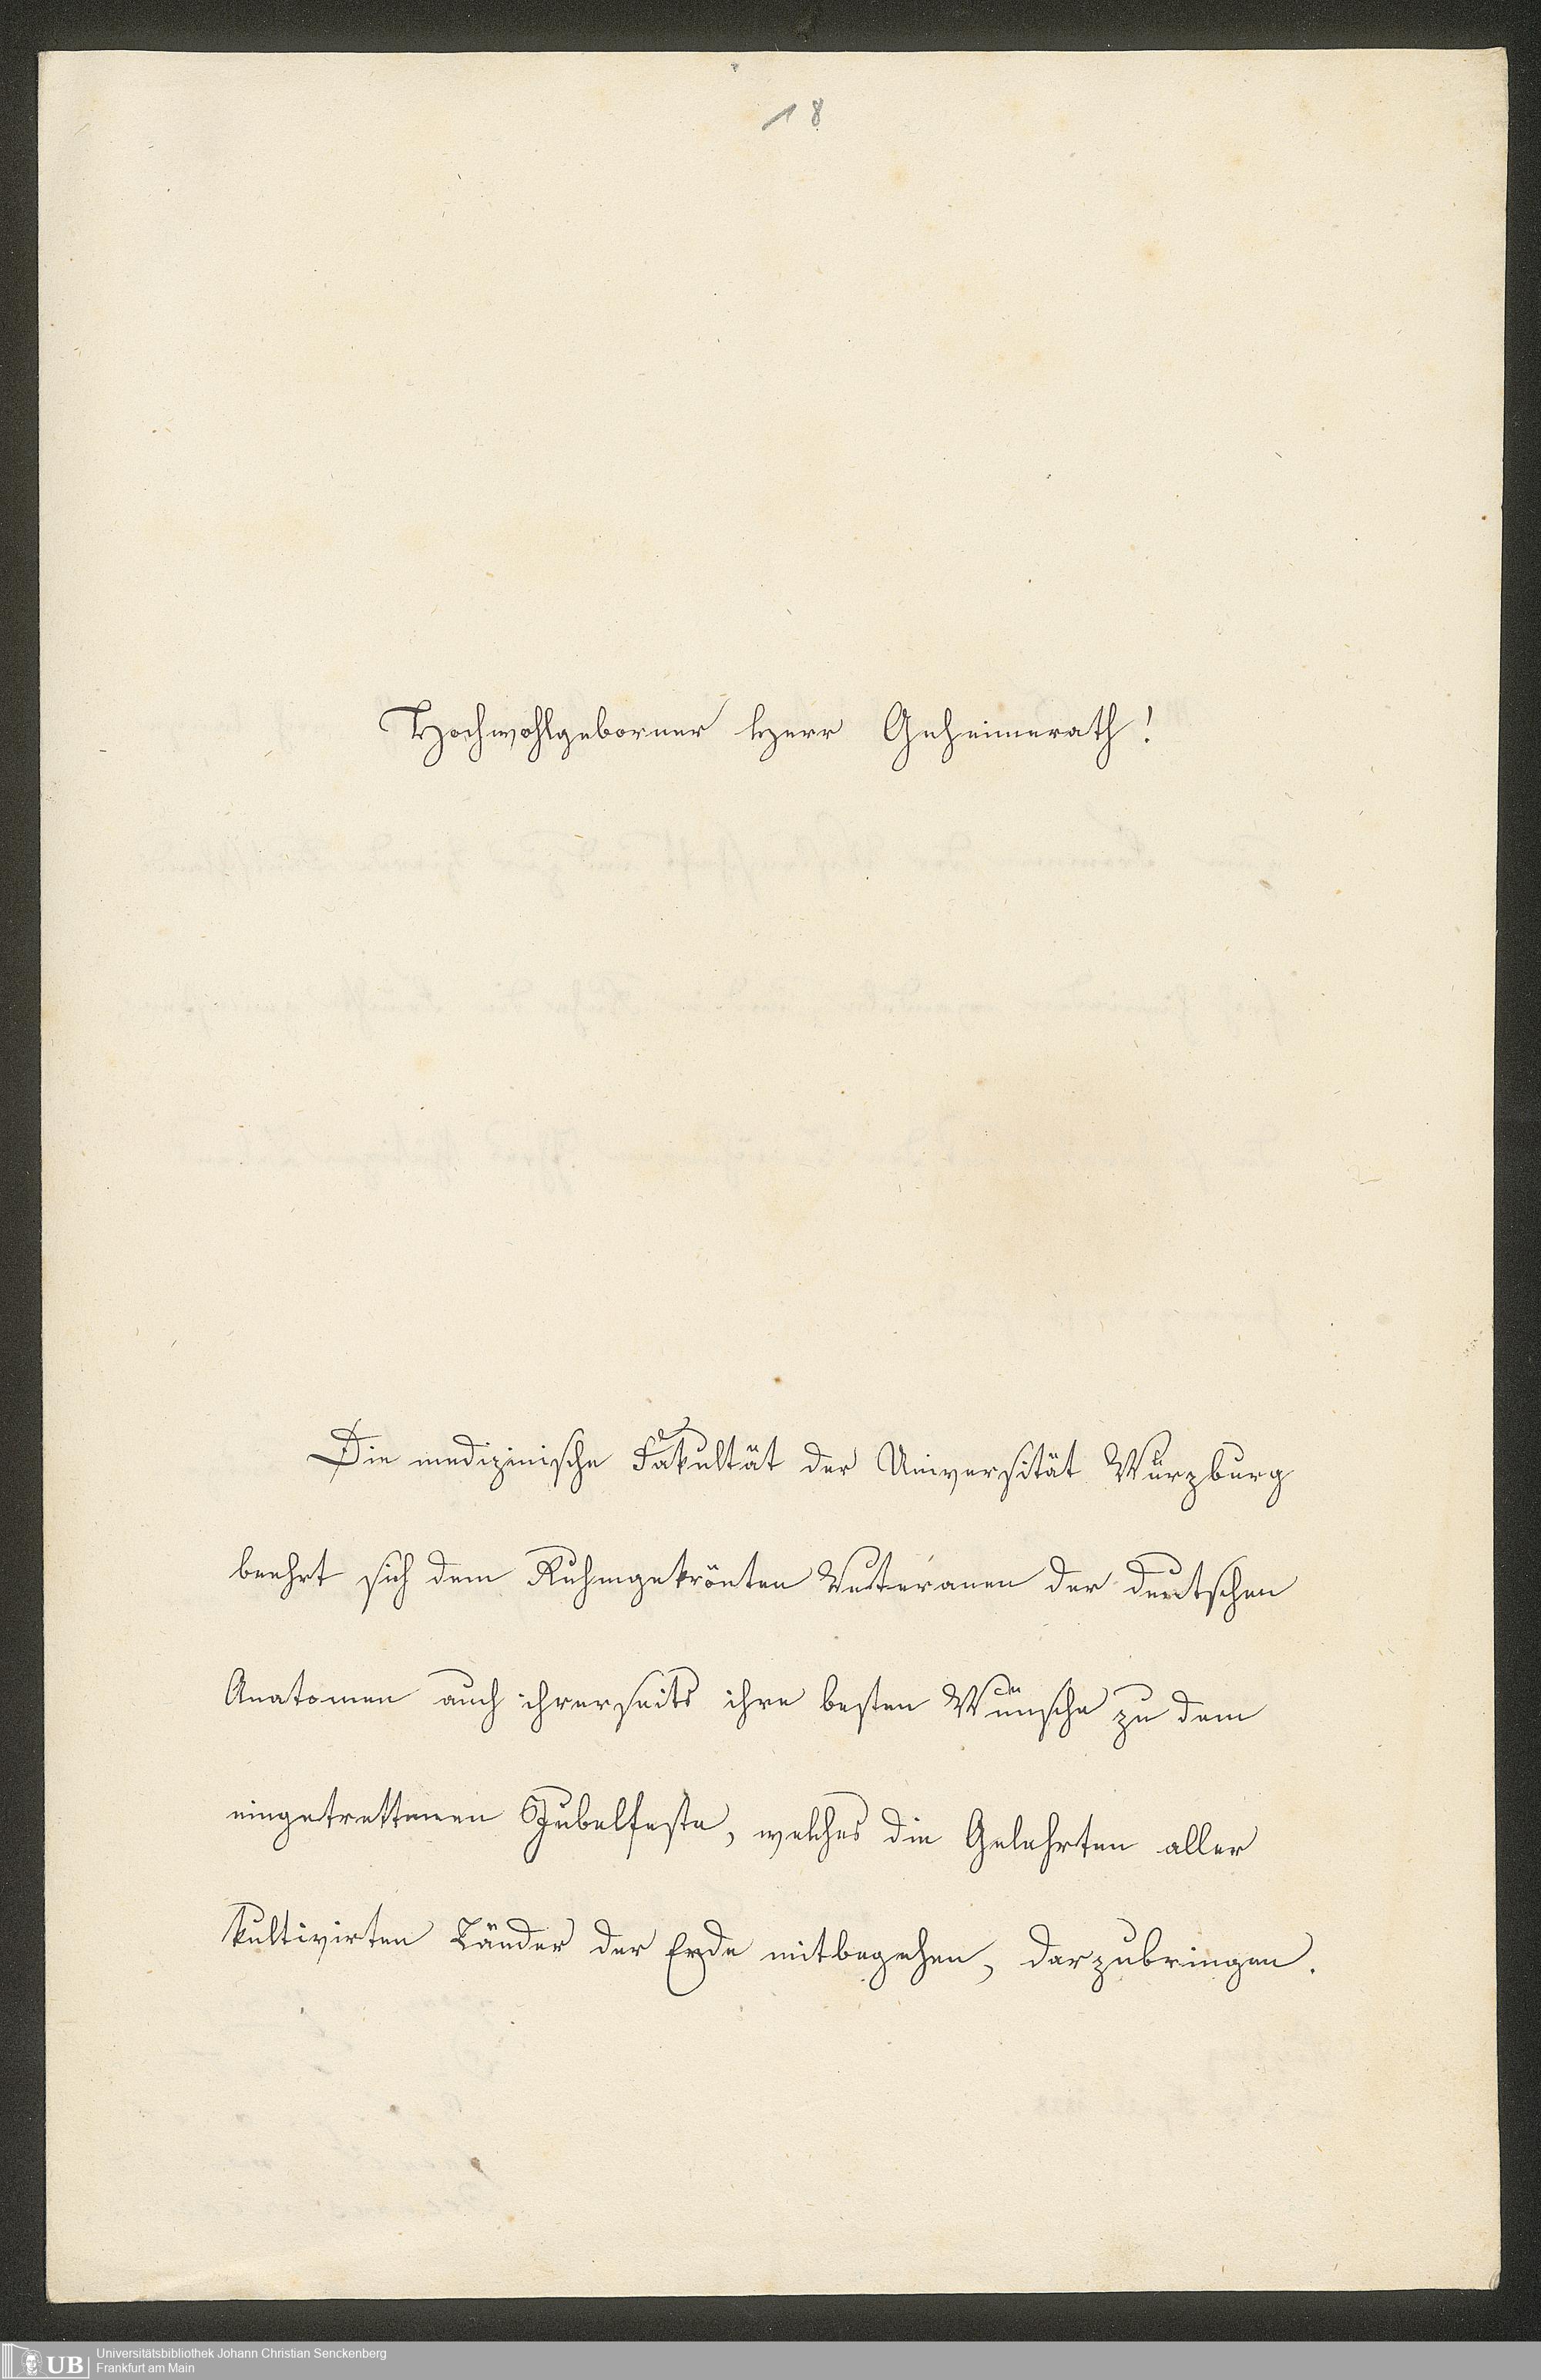 18
Hochwohlgeborner Herr Geheimerath!
Die medizinische Fakultät der Universität Würzburg
beehrt sich dem Ruhmgekrönten Veteranen der deutschen
Anatomen auch ihrerseits ihre besten Wünsche zu dem
eingetrettenen Jubelfeste, welches die Gelehrten aller
kultivirten Länder der Erde mitbegehen, darzubringen.
UB
Universitätsbibliothek Johann Christian Senckenberg
Frankfurt am Main